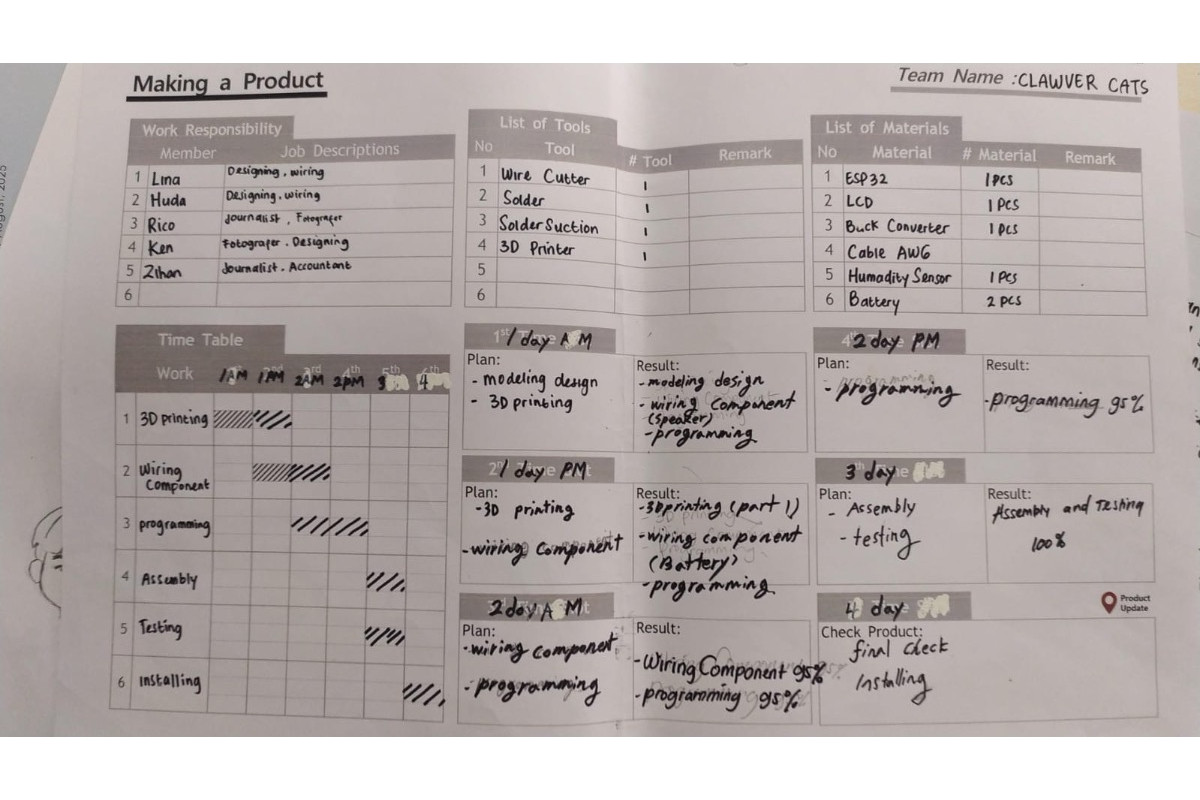 Making a Product
Team Name :CLAWVER CATS
Work Responsibility
Member Job Descriptions
1 Lina Designing. wiring
2 Huda Designing. wiring
3 Rico Journalist. Fotografer
4 Ken Fotografer. Designing
5 Zihan Journalist. Accountant
6
List of Tools
No Tool # Tool Remark
1 Wire Cutter 1
2 Solder 1
3 Solder Suction 1
4 3D Printer 1
5
6
List of Materials
No Material # Material Remark
1 ESP32 1 PCS
2 LCD 1 PCS
3 Buck Converter 1 PCS
4 Cable AWG
5 Humadity Sensor 1 PCS
6 Battery 2 PCS
Time Table
Work 1AM 1PM 2AM 2PM 3 4
1 3D printing
2 Wiring
Component
3 programming
4 Assembly
5 Testing
6 Installing
1 day AM
Plan:
- modeling design
- 3D printing
Result:
- modeling design
- wiring Component
(Speaker)
- programming
1 day PM
Plan:
- 3D printing
- wiring Component
Result:
- 3D printing (part 1)
- wiring component
(Battery)
- programming
2 day AM
Plan:
- wiring component
- programming
Result:
- Wiring Component 95%
- programming 95%
2 day PM
Plan:
- programming
Result:
- programming 95%
3 day
Plan:
- Assembly
- testing
Result:
Assembly and Testing
100%
4 day
Product
Update
Check Product:
final check
Installing